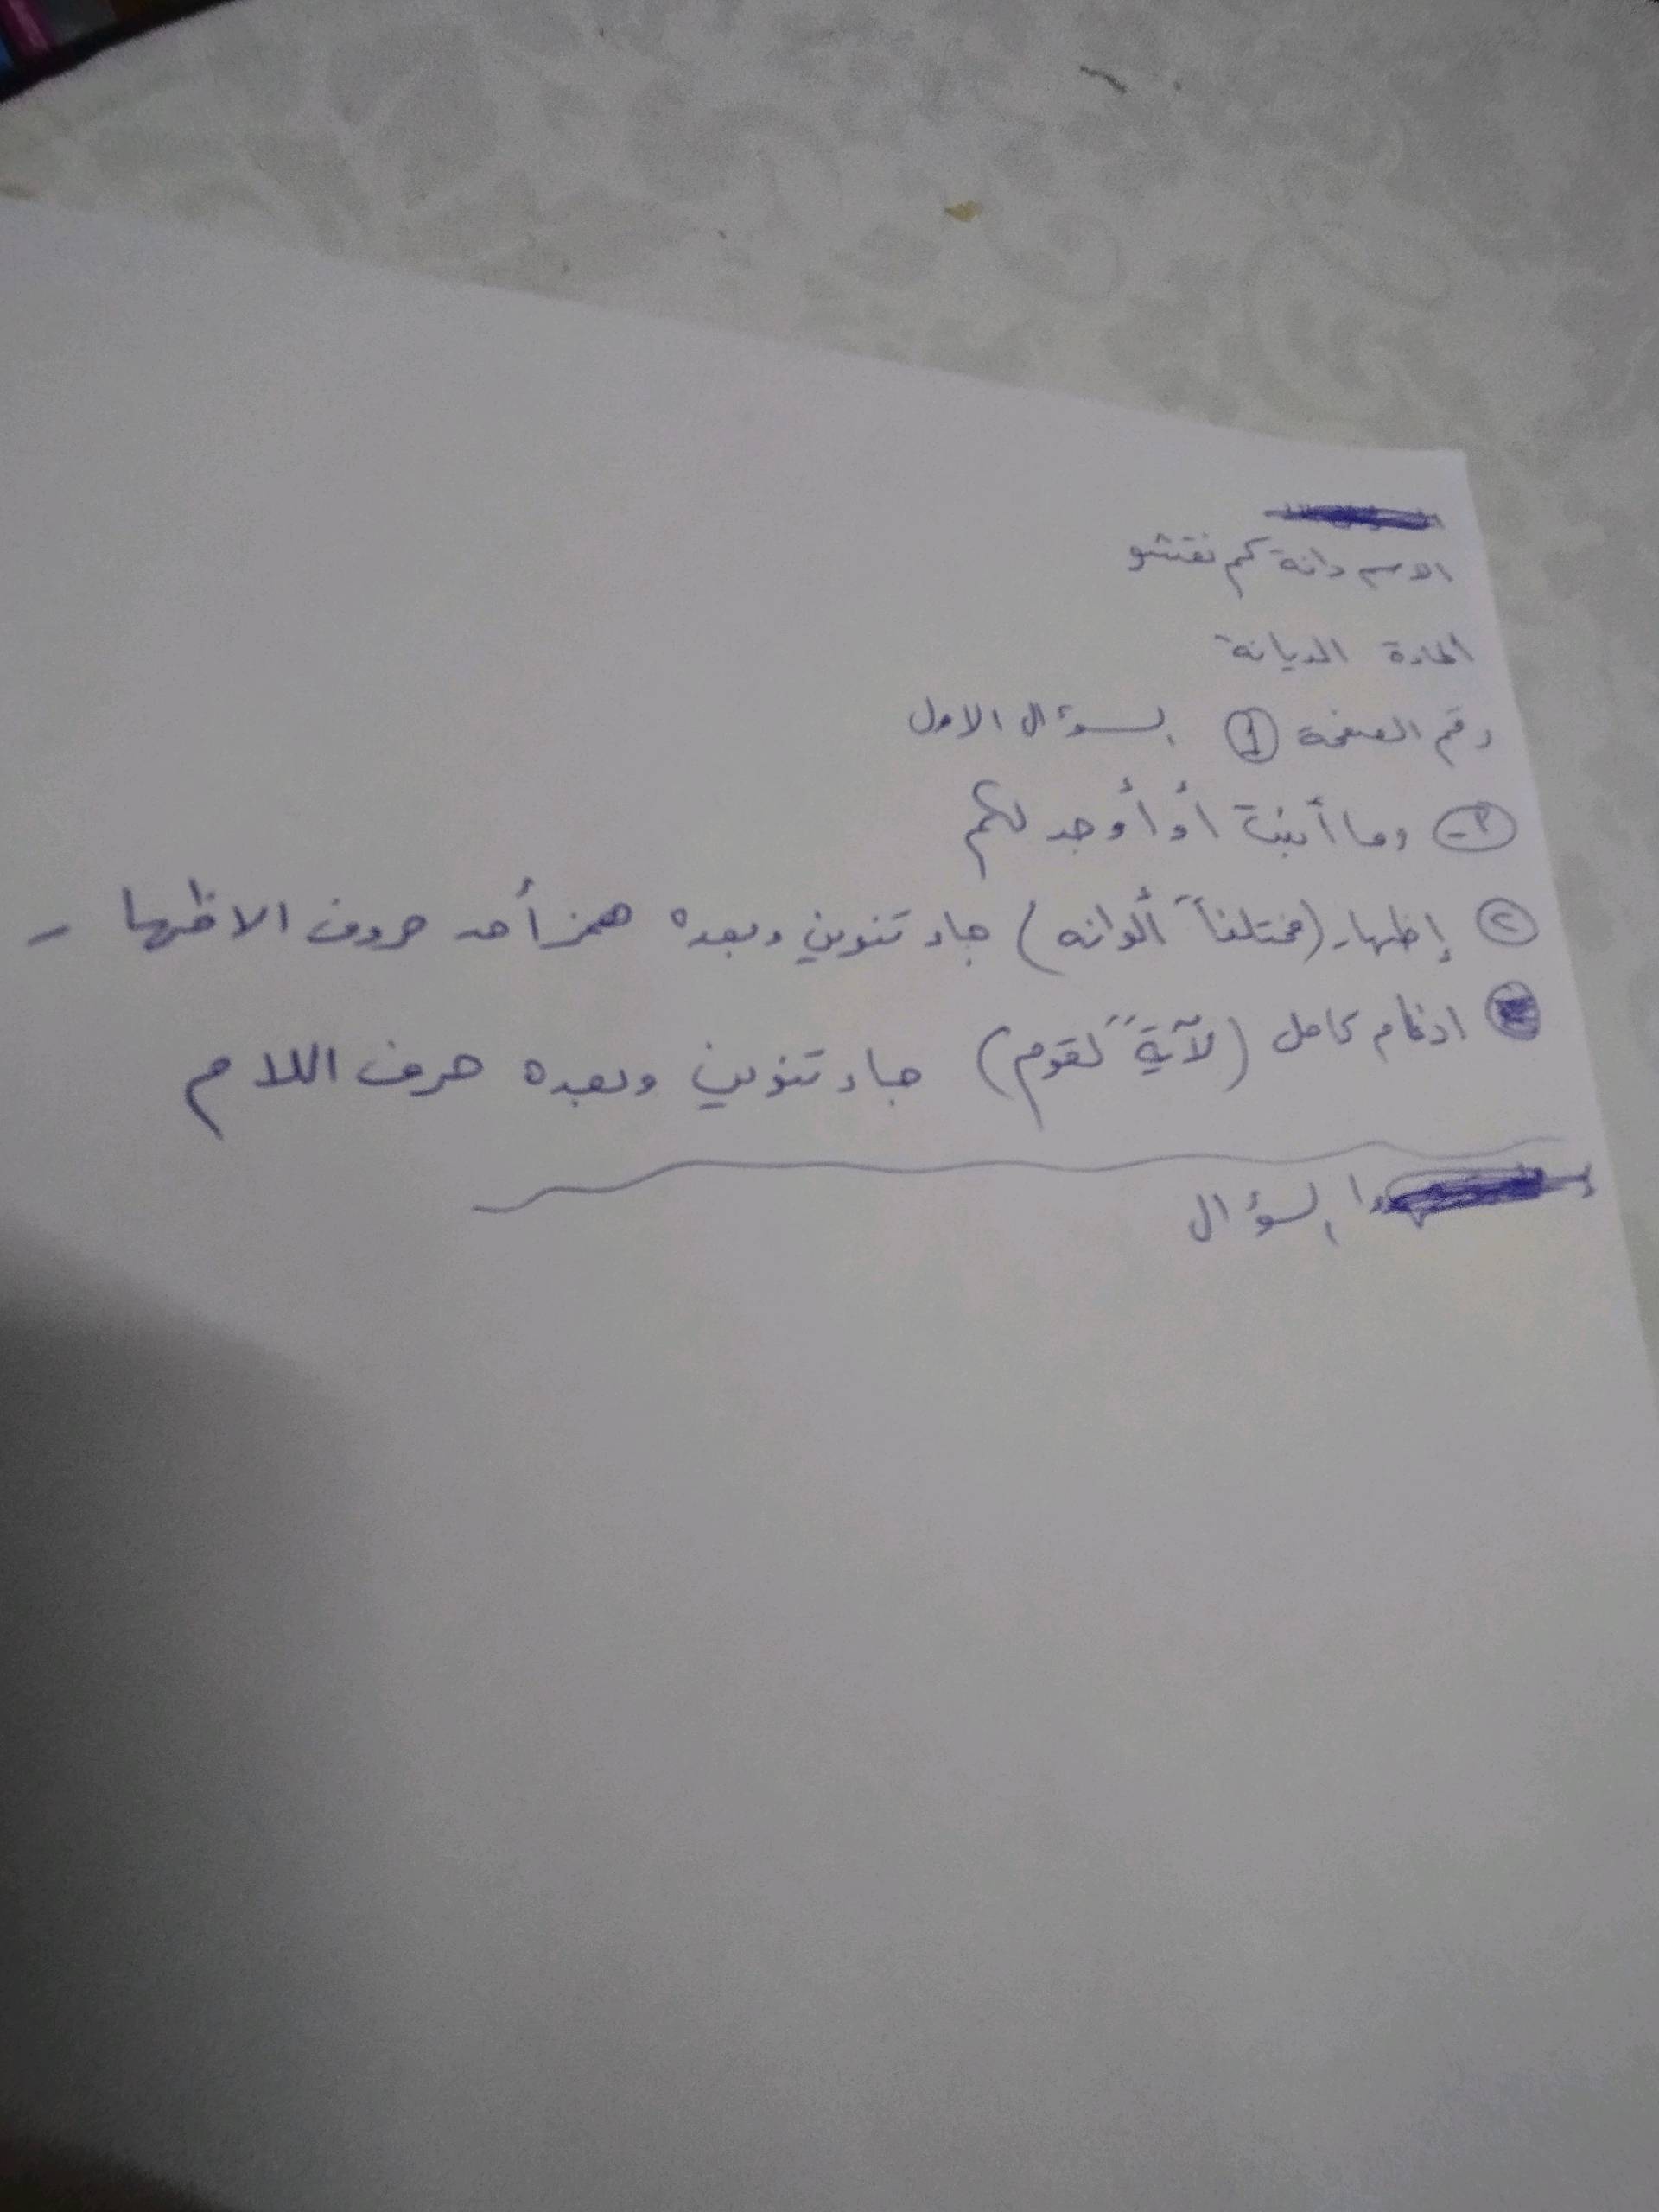 الاسم دانة كم نقشو
المادة الديانة
رقم الصفحة ① السؤال الاول
وما أنبت أو أوجد لكم
② إظهار (مختلفاً ألوانه) جاء تنوين وبعده همز أحد حروف الاظهار
ادغام كامل (لآيةً لقوم) جاء تنوين وبعده حرف اللام
السؤال